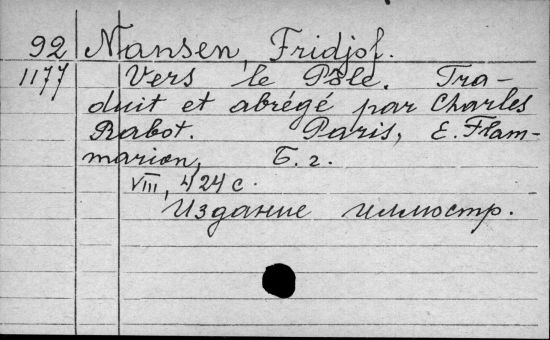 92 Nansen, Fridjof.
1177 Vers le Pôle. Tra-
duit et abrégé par Charles
Rabot. Paris, E. Flam-
marion, Б. г.
VIII, 424 с.
Издание иллюстр.